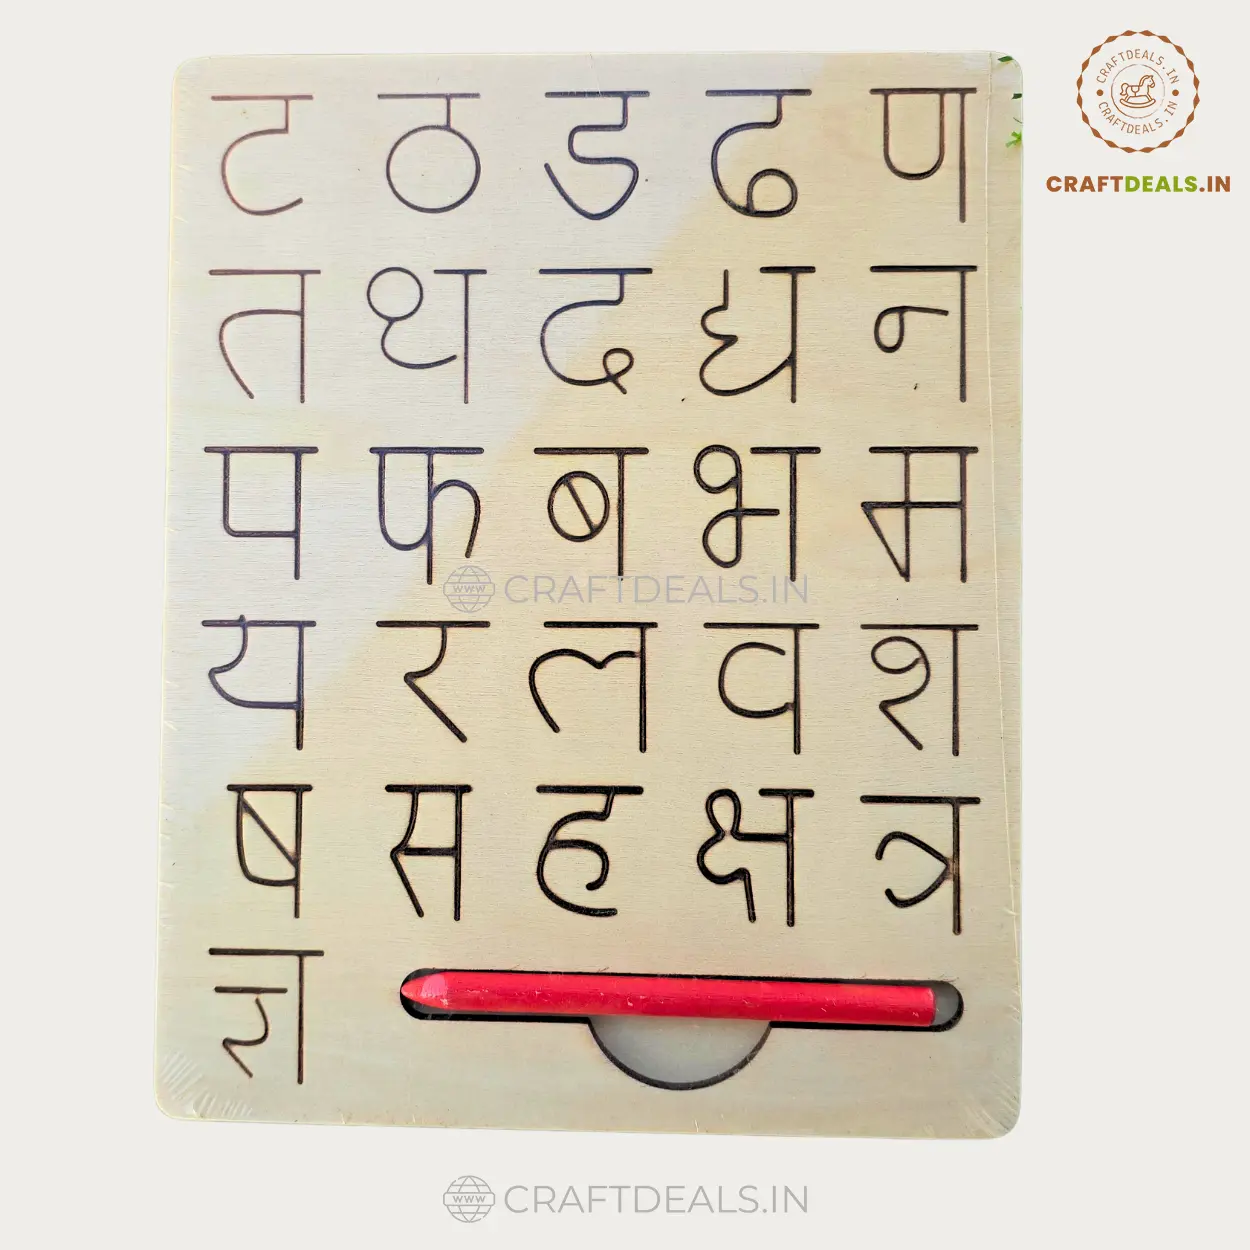 CRAFTDEALS.IN
CRAFTDEALS.IN
CRAFTDEALS.IN
ट ठ ड ढ ण
त थ द ध न
प फ ब भ म
CRAFTDEALS.IN
य र ल व श
ष स ह क्ष त्र
ज्ञ
www CRAFTDEALS.IN